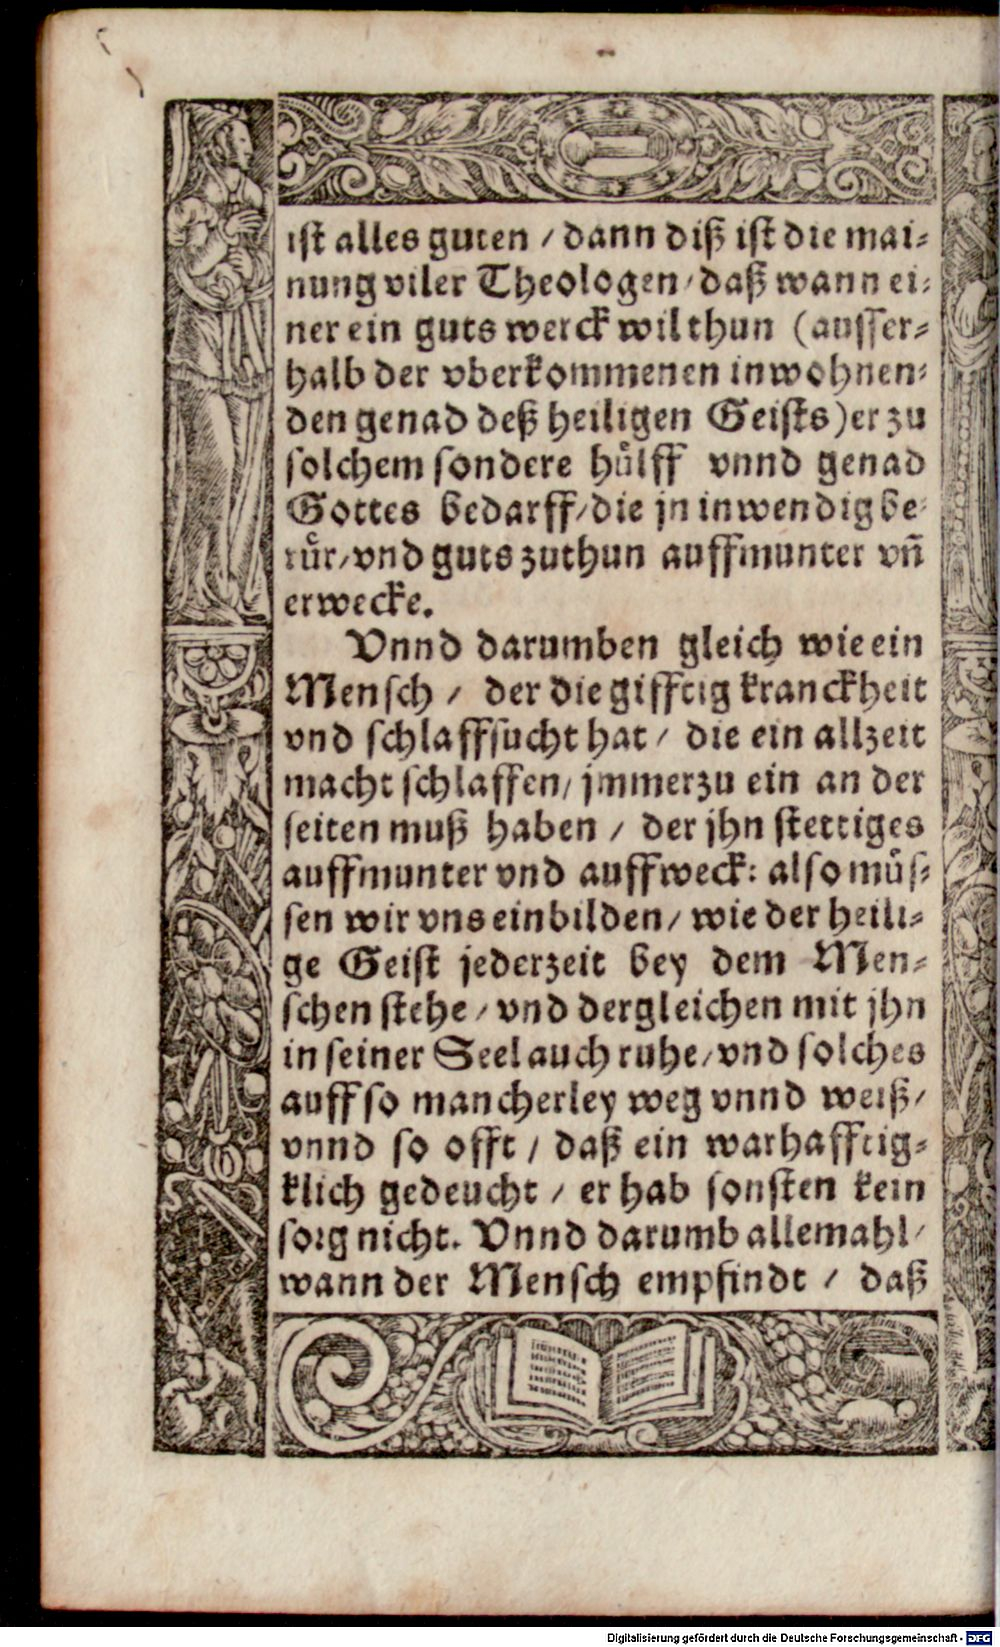 ist alles guten / dann diß ist die mai⸗
nung viler Theologen / daß wann ei⸗
ner ein guts werck wil thun (ausser⸗
halb der vberkommenen inwohnen⸗
den genad deß heiligen Geists) er zu
solchem sondere huͤlff vnnd genad
Gottes bedarff / die jn inwendig be⸗
ruͤr / vnd guts zuthun auffmunter vn̄
erwecke.
Vnnd darumben gleich wie ein
Mensch / der die gifftig kranckheit
vnd schlaffsucht hat / die ein allzeit
macht schlaffen / jmmerzu ein an der
seiten muß haben / der jhn stettiges
auffmunter vnd auffweck: also muͤs⸗
sen wir vns einbilden / wie der heili⸗
ge Geist jederzeit bey dem Men⸗
schen stehe / vnd dergleichen mit jhn
in seiner Seel auch ruhe / vnd solches
auff so mancherley weg vnnd weiß /
vnnd so offt / daß ein warhafftig⸗
klich gedeucht / er hab sonsten kein
sorg nicht. Vnnd darumb allemahl /
wann der Mensch empfindt / daß
Digitalisierung gefördert durch die Deutsche Forschungsgemeinschaft - DFG